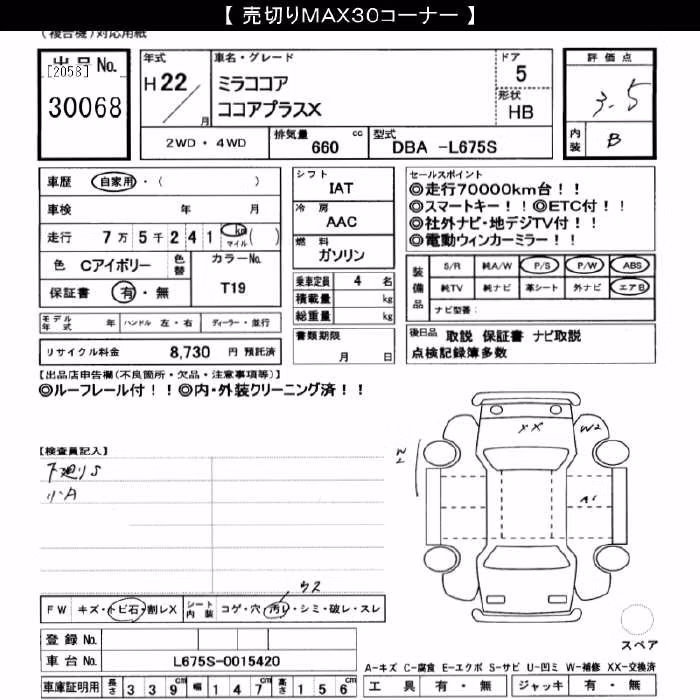 【 売切りMAX30コーナー 】
(複合機)対応用紙
出品No.
[2058]
30068
年式
H22
月
車名・グレード
ミラココア
ココアプラスX
ドア
5
形状
HB
評価点
3.5
内装
B
2WD・4WD
排気量
660 cc
型式
DBA -L675S
車歴 自家用・( )
車検 年 月
走行 7万5千241 km マイル ( )
色 Cアイボリー 色替
カラーNo.
T19
保証書 有・無
シフト
IAT
冷房
AAC
燃料
ガソリン
乗車定員 4 名
積載量 kg
総重量 kg
書類期限
月 日
セールスポイント
◎走行70000km台！！
◎スマートキー！！◎ETC付！！
◎社外ナビ・地デジTV付！！
◎電動ウィンカーミラー！！
装備品
S/R 純A/W P/S P/W ABS
純TV 純ナビ 革シート 外ナビ エアB
ナビ型番:
モデル年式 年 ハンドル 左・右 ディーラー・並行
リサイクル料金 8,730 円 預託済
後日品 取説 保証書 ナビ取説
点検記録簿多数
【出品店申告欄(不良箇所・欠品・注意事項等)】
◎ルーフレール付！！◎内・外装クリーニング済！！
【検査員記入】
下廻りS
小A
XX
W2
W2
A1
ウス
FW キズ・トビ石・割レX
シート内装 コゲ・穴・汚レ・シミ・破レ・スレ
登録No.
車台No. L675S-0015420
車庫証明用 長さ 339cm 幅 147cm 高さ 156cm
スペア
A-キズ C-腐食 E-エクボ S-サビ U-凹ミ W-補修 XX-交換済
工具 有・無 ジャッキ 有・無